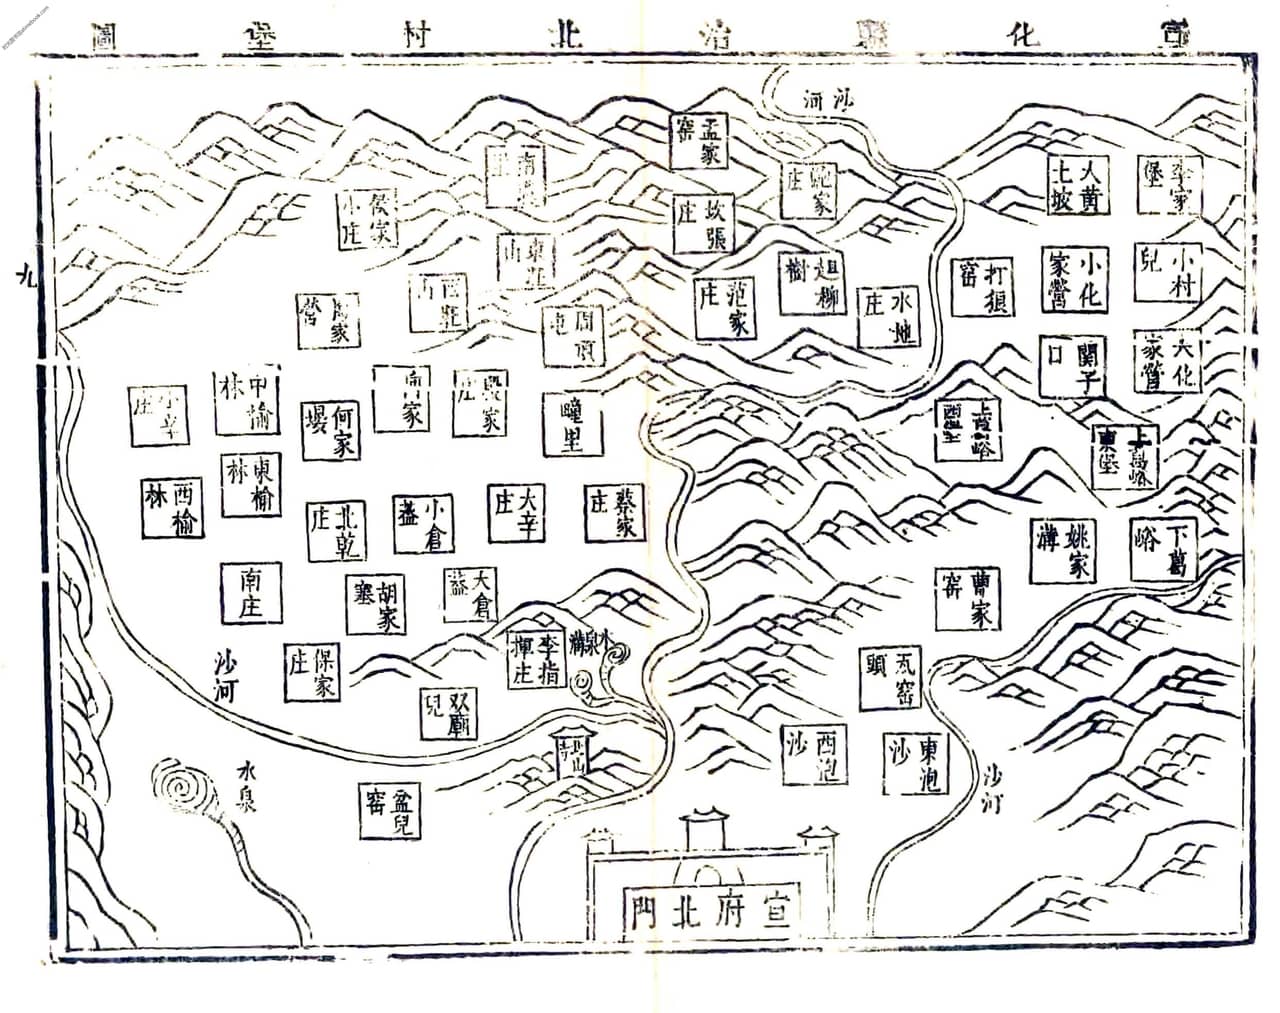 宣化縣治北村堡圖
沙河
李家堡
大黄土坡
孟家窑
小村兒
小化家營
打狼窑
水地庄
坎張庄
范家庄
東莊山
西莊山
侯家小庄
六化家營
關子口
上葛峪東堡
疃里
殷家庄
何家塲
中榆林
小辛庄
下葛峪
姚家溝
曹家窑
蔡家庄
大辛庄
小倉葢
北乾庄
東榆林
西榆林
大倉葢
胡家寨
南庄
水泉溝
李指揮庄
保家庄
沙河
瓦窑頭
双廟兒
東泡沙
西泡沙
沙河
北山寺
盆兒窑
水泉
宣府北門
九